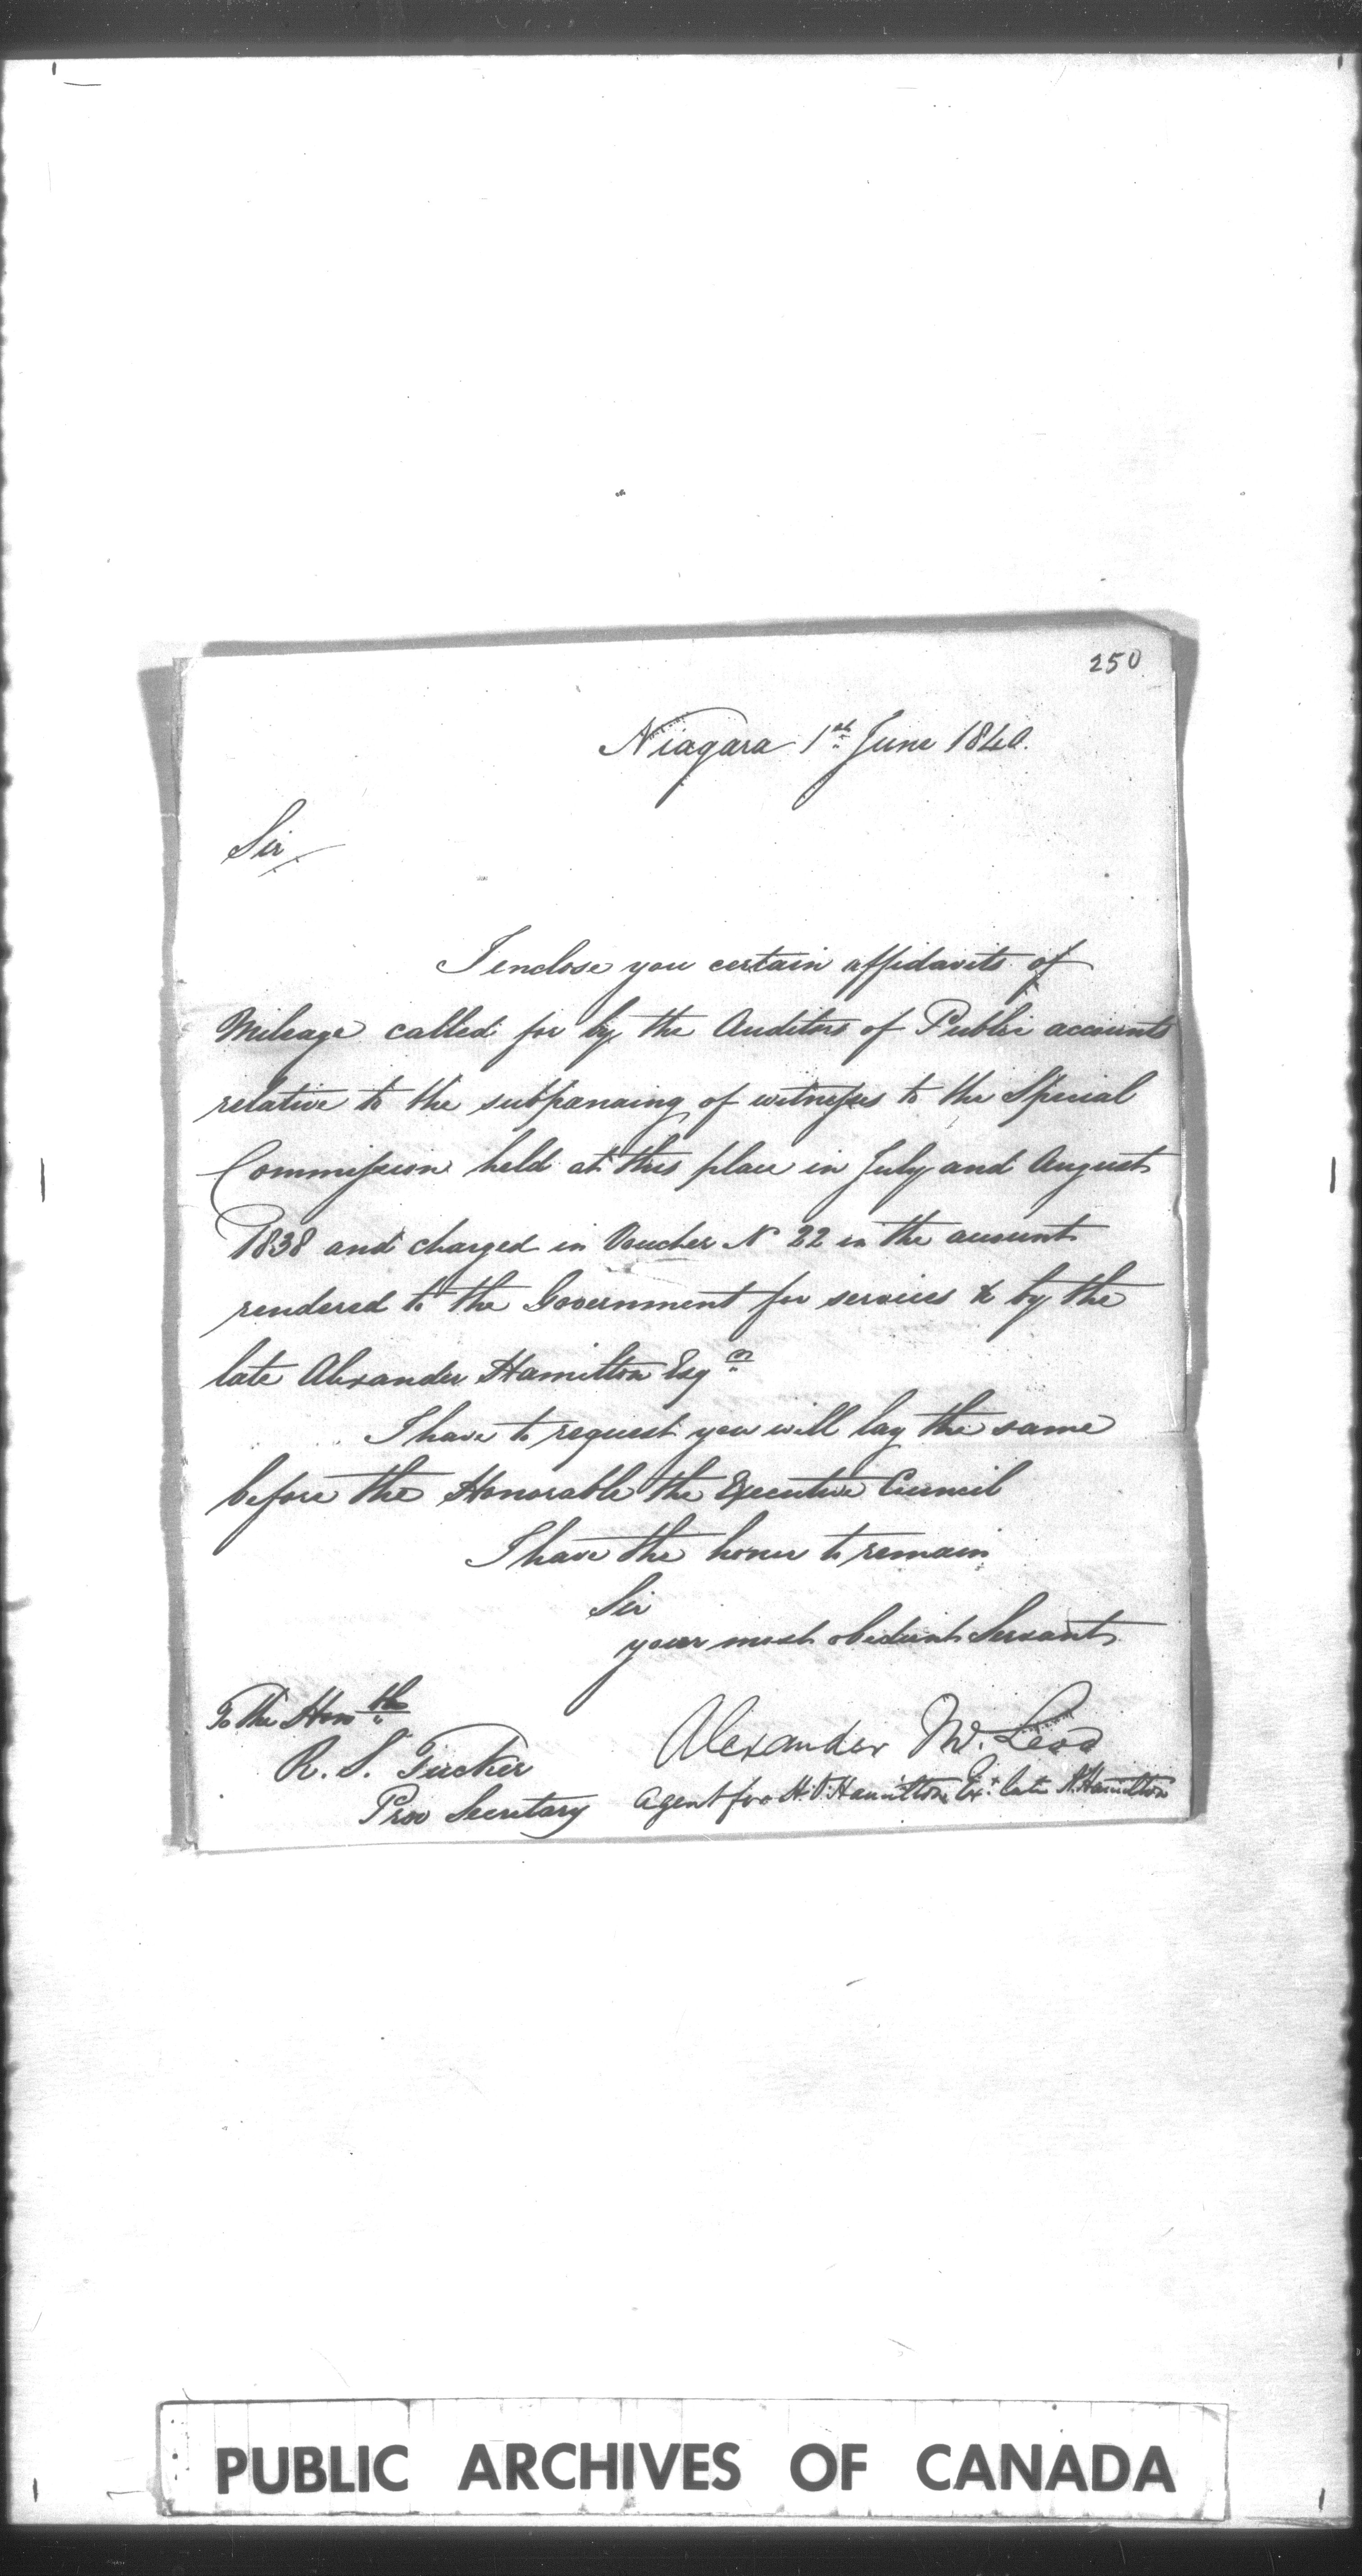 250
Niagara 1st June 1840.
Sir
I enclose you certain affidavits of
Mileage called for by the Auditors of Public accounts
relative to the subpanaing of witnesses to the Special
Commission held at this place in July and August
1838 and charged in Voucher No 22 in the account
rendered to the Government for services &c by the
late Alexander Hamilton Esqre
I have to request you will lay the same
before the Honorable the Executive Council
I have the honor to remain
Sir
your most obedient Servant
To The Honble
R. S. Tucker
Prov Secretary
Alexander McLeod
Agent for H. Hamilton Ex. late A. Hamilton
PUBLIC ARCHIVES OF CANADA